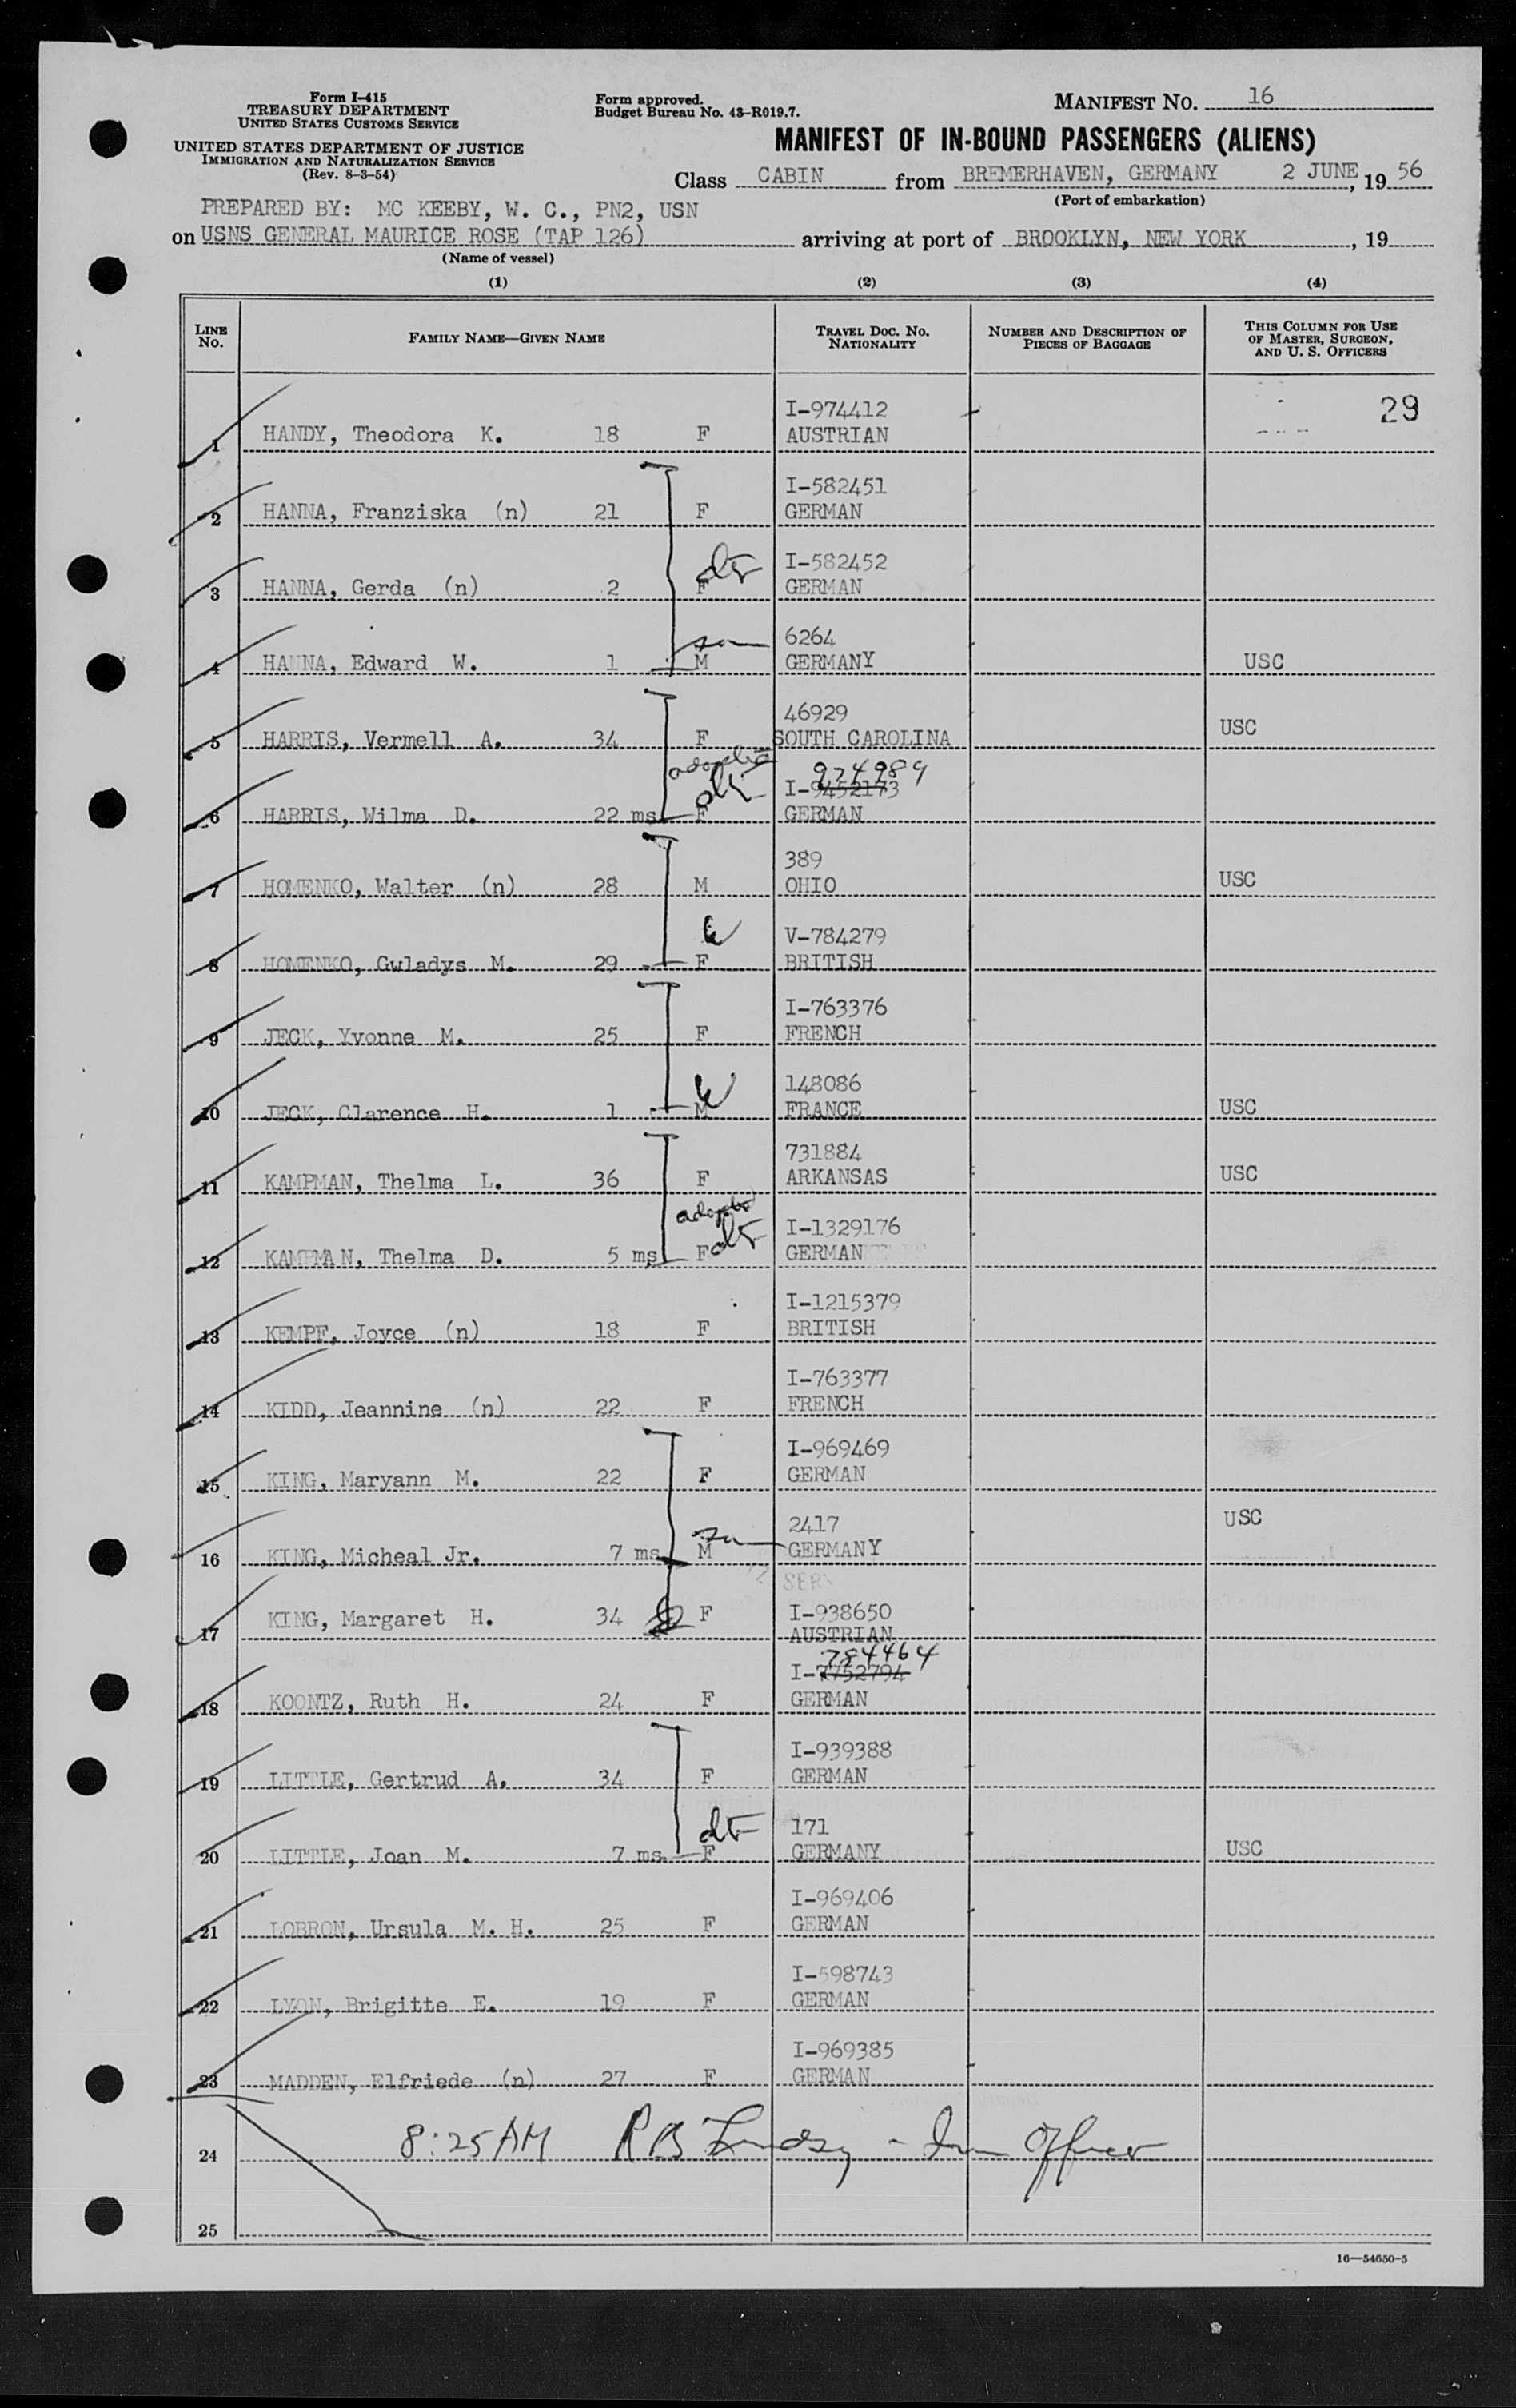 Form I-415
TREASURY DEPARTMENT
UNITED STATES CUSTOMS SERVICE
UNITED STATES DEPARTMENT OF JUSTICE
IMMIGRATION AND NATURALIZATION SERVICE
(Rev. 8-3-54)
Form approved.
Budget Bureau No. 43-R019.7.
MANIFEST NO. 16
MANIFEST OF IN-BOUND PASSENGERS (ALIENS)
Class CABIN from BREMERHAVEN, GERMANY 2 JUNE, 19 56
(Port of embarkation)
PREPARED BY: MC KEEBY, W. C., PN2, USN
on USNS GENERAL MAURICE ROSE (TAP 126) arriving at port of BROOKLYN, NEW YORK, 19
(Name of vessel)
(1) (2) (3) (4)
LINE NO. FAMILY NAME—GIVEN NAME TRAVEL DOC. NO. NATIONALITY NUMBER AND DESCRIPTION OF PIECES OF BAGGAGE THIS COLUMN FOR USE OF MASTER, SURGEON, AND U. S. OFFICERS
I-974412 29
1 HANDY, Theodora K. 18 F AUSTRIAN
I-582451
2 HANNA, Franziska (n) 21 F GERMAN
dtr I-582452
3 HANNA, Gerda (n) 2 F GERMAN
son 6264
4 HANNA, Edward W. 1 M GERMANY USC
46929
5 HARRIS, Vermell A. 34 F SOUTH CAROLINA USC
adopted 974989
dtr I-9452173
6 HARRIS, Wilma D. 22 ms F GERMAN
389
7 HOMENKO, Walter (n) 28 M OHIO USC
W V-784279
8 HOMENKO, Gwladys M. 29 F BRITISH
I-763376
9 JECK, Yvonne M. 25 F FRENCH
W 148086
10 JECK, Clarence H. 1 M FRANCE USC
731884
11 KAMPMAN, Thelma L. 36 F ARKANSAS USC
adopted
dtr I-1329176
12 KAMPMAN, Thelma D. 5 ms F GERMAN
I-1215379
13 KEMPF, Joyce (n) 18 F BRITISH
I-763377
14 KIDD, Jeannine (n) 22 F FRENCH
I-969469
15 KING, Maryann M. 22 F GERMAN
son 2417
16 KING, Micheal Jr. 7 ms M GERMANY USC
I-938650
17 KING, Margaret H. 34 F AUSTRIAN
784464
I-7752794
18 KOONTZ, Ruth H. 24 F GERMAN
I-939388
19 LITTLE, Gertrud A. 34 F GERMAN
dtr 171
20 LITTLE, Joan M. 7 ms F GERMANY USC
I-969406
21 LOBRON, Ursula M. H. 25 F GERMAN
I-598743
22 LYON, Brigitte E. 19 F GERMAN
I-969385
23 MADDEN, Elfriede (n) 27 F GERMAN
24 8:25 AM R B Lindsy - Imm Officer
25
16—54650-5